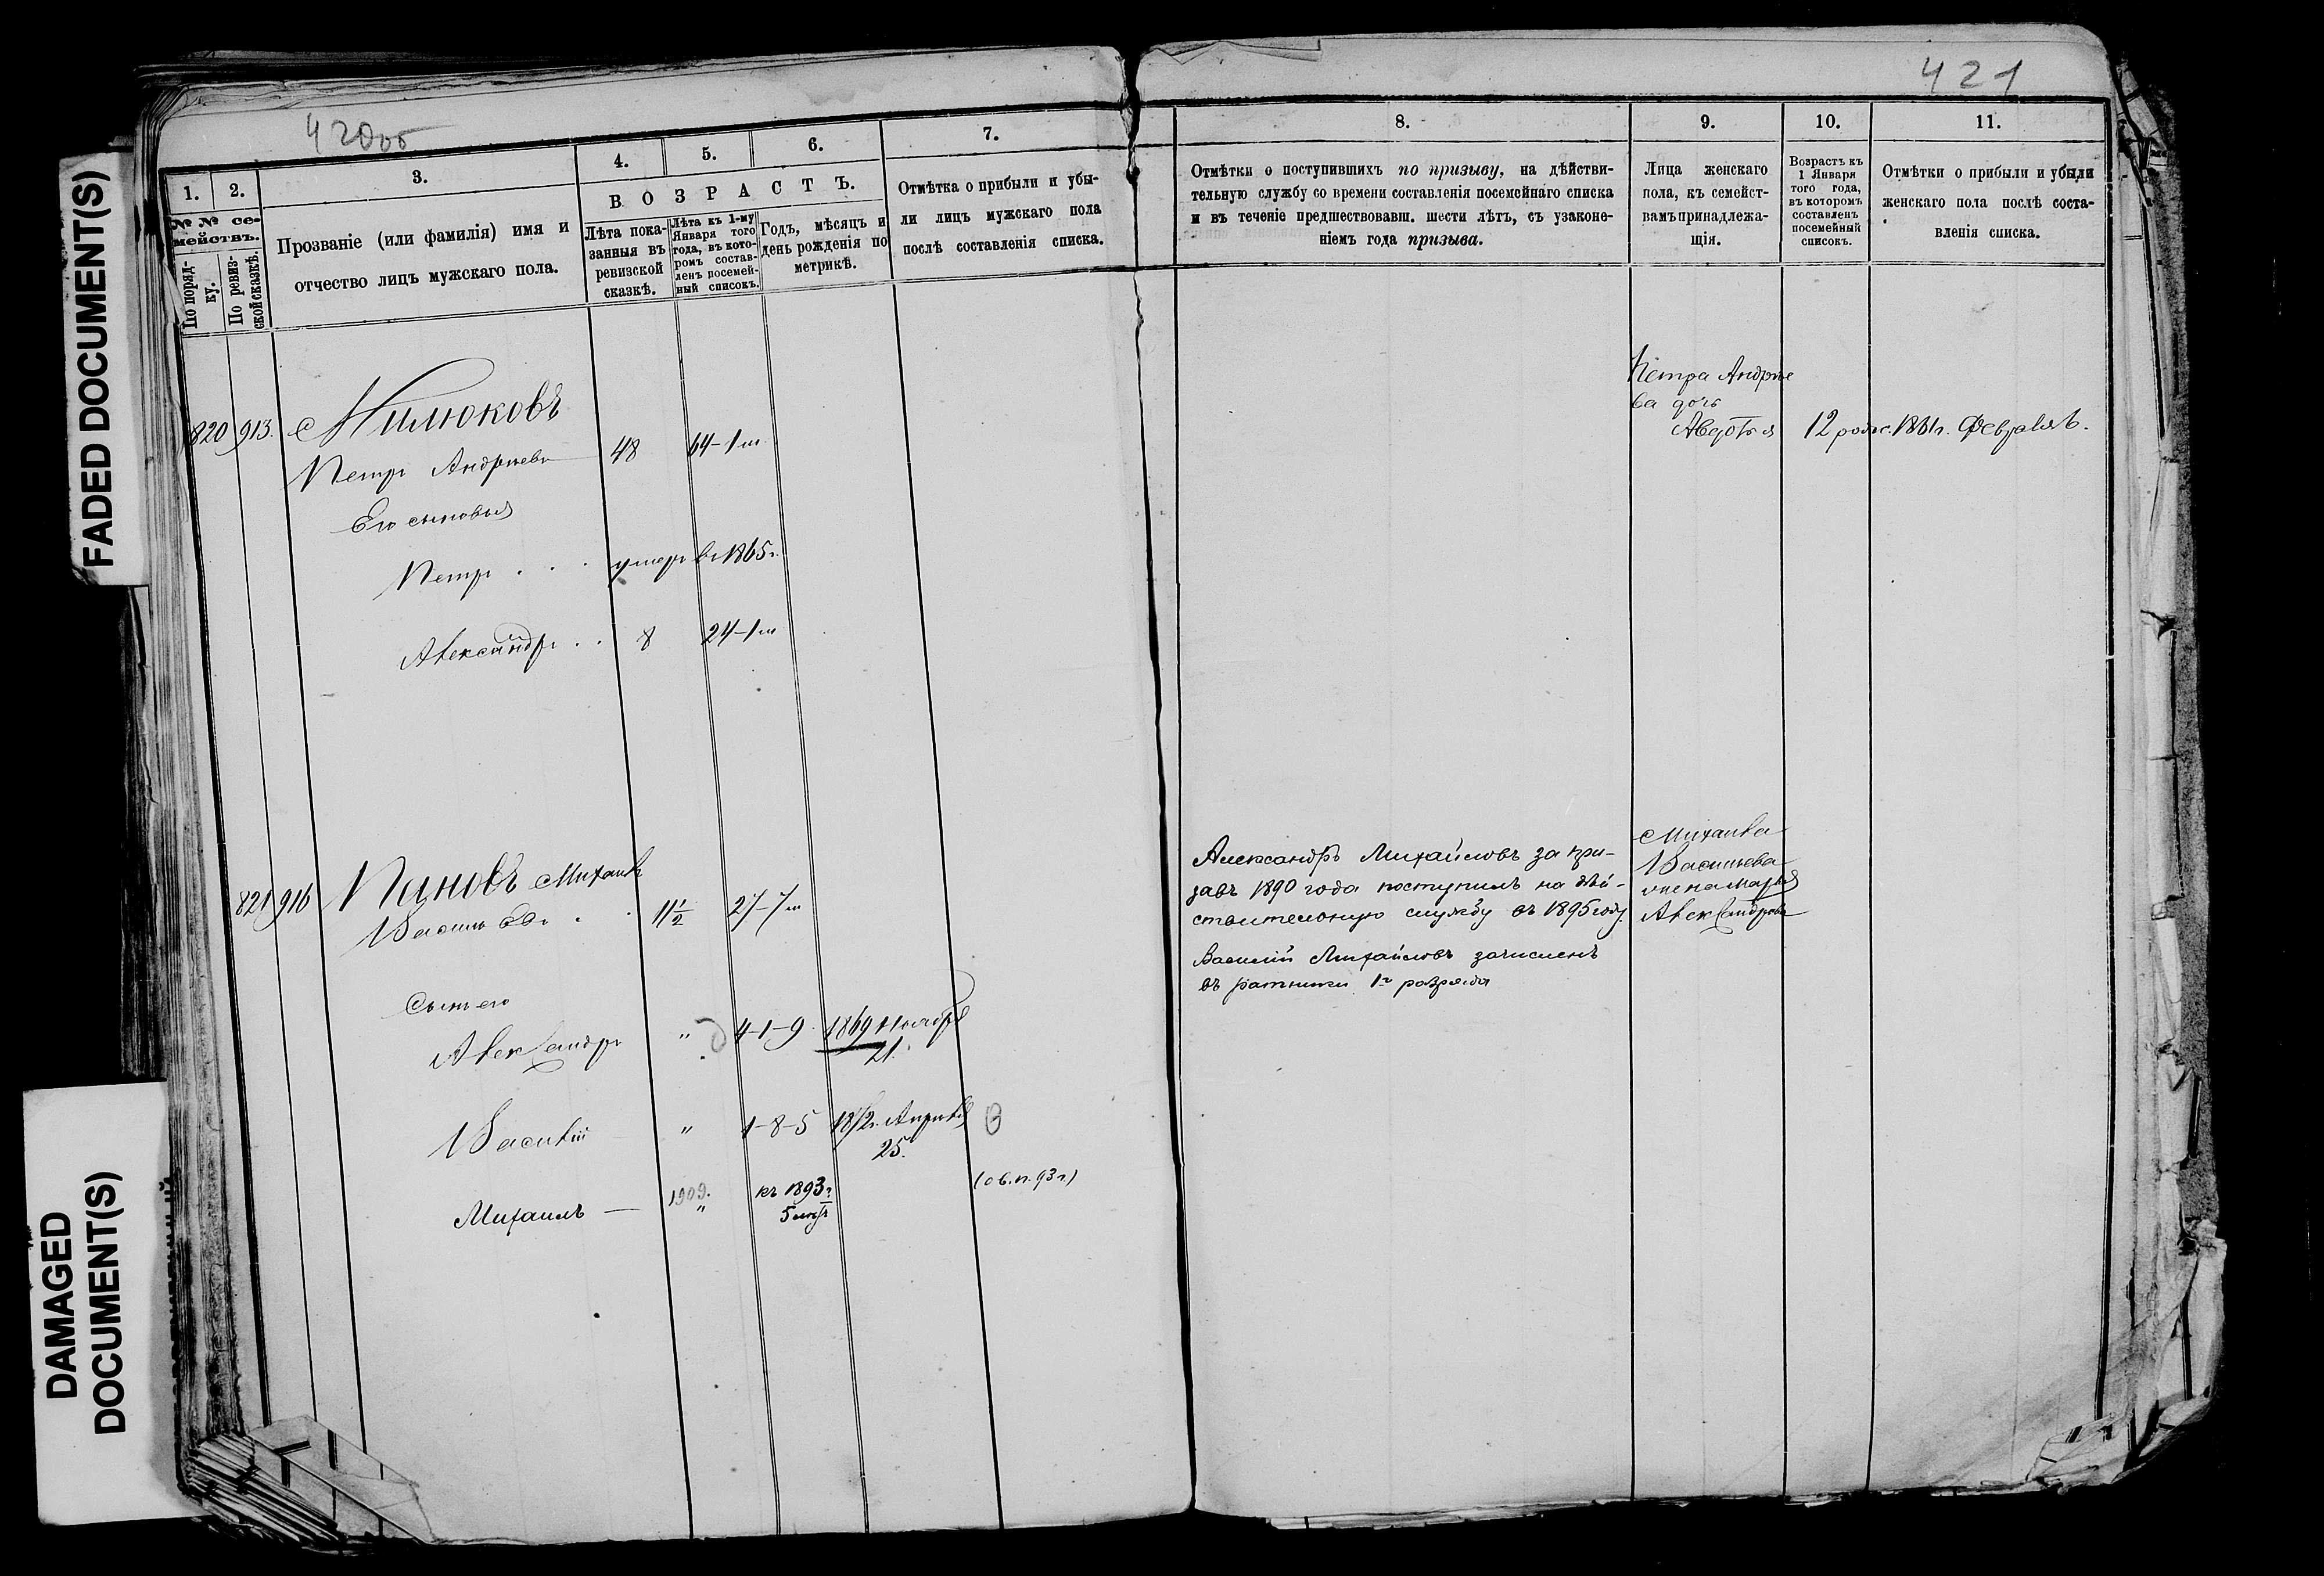 FADED DOCUMENT(S)
DAMAGED
DOCUMENT(S)
420об
1.
2.
3.
4.
5.
6.
7.
№ № се-
мействъ.
По поряд-
ку.
По ревиз-
ской сказкѣ.
Прозваніе (или фамилія) имя и
отчество лицъ мужскаго пола.
ВОЗРАСТЪ.
Лѣта пока-
занныя въ
ревизской
сказкѣ.
Лѣта къ 1-му
Января того
года, въ кото-
ромъ состав-
ленъ посемей-
ный списокъ.
Годъ, мѣсяцъ и
день рожденія по
метрикѣ.
Отмѣтка о прибыли и убы-
ли лицъ мужскаго пола
послѣ составленія списка.
820 913. Милюковъ
Петръ Андреевъ 48 64-1м
Его сыновья
Петръ . . . умеръ въ 1865г.
Александръ . . 8 24-1м
821 916 Пановъ Михаилъ
Васильевъ . . 11½ 27-7м
Сынъ его
Александръ " 4-1-9 1869 Ноября
21.
Василій " 1-8-5 1872г. Апрѣля
25.
Михаилъ — 1909. " къ 1893г (об.п.93г)
421
8.
9.
10.
11.
Отмѣтки о поступившихъ по призыву, на дѣйстви-
тельную службу со времени составленія посемейнаго списка
и въ теченіе предшествовавш. шести лѣтъ, съ узаконе-
ніемъ года призыва.
Лица женскаго
пола, къ семейст-
вамъ принадлежа-
щія.
Возрастъ къ
1 Января
того года,
въ которомъ
составленъ
посемейный
списокъ.
Отмѣтки о прибыли и убыли
женскаго пола послѣ соста-
вленія списка.
Петра Андрее
ва дочь
Авдотья 12 родис. 1861г. Февраля
Александръ Михайловъ за при-
зывъ 1890 года поступилъ на дѣй-
ствительную службу въ 1895 году.
Василій Михайловъ зачисленъ
въ ратники 1го разряда
Михаила
Васильева
жена Марья
Александрова